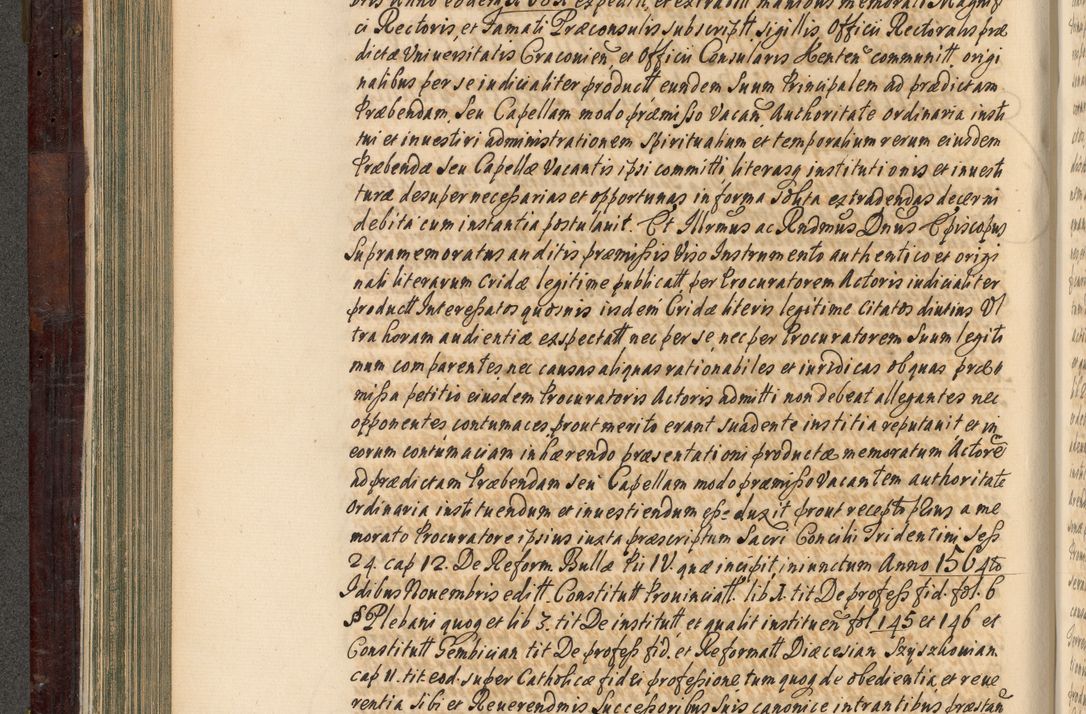 bris Anno eodem expediti, et extraditi manibus memorati Magnifi
ci Rectoris, et Famati Præconsulis subscriptt, sigillis, Officii Rectoralis præ
dictæ Universitatis Cracovien, et Officii Consularis Kenten communitt, origi
nalibus per se iudicialiter productt eundem suum Principalem ad prædictam
Præbendam, seu Capellam modo præmisso Vacan, Authoritate ordinaria insti
tui et investiri administrationem Spiritualium et temporalium rerum eiusdem
Præbendæ seu Capellæ Vacantis ipsi committi literasq institutionis et investi
turæ desuper necessarias et opportunas in forma solita extradendas decerni
debita cum instantia postulavit. Et Illrmus ac Rndmus Dnus Episcopus
supramemoratus auditis præmissis Viso Instrumento authentico et origi
nali literarum Cridæ legitime publicatt per Procuratorem Actoris iudicialiter
productt Interessatos quosvis iisdem Cridæ literis legitime Citatos diutius Ul
tra horam audientiæ exspectatt nec per se, nec per Procuratorem Suum legiti
mum comparentes, nec causas aliquas rationabiles et iuridicas ob quas præ
missa petitio eiusdem Procuratoris Actoris admitti non debeat allegantes nec
opponentes contumaces, prout merito erant suadente iustitia reputavit et in
eorum contumaciam inhærendo præsentationi productæ memoratum Actore
ad prædictam Præbendam seu Capellam modo præmisso Vacantem authoritate
Ordinaria instituendum et investiendum esse duxit prout recepto prius a me
morato Procuratore ipsius iuxta præscriptum Sacri Concilii Tridentini Sess
24. cap 12. De Reform. Bullæ Pii IV. quæ incipit, iniunctum Anno 1564to
Idibus Novembris editt. Constitutt Provinciall. lib. 1. tit De profess fid. fol. 6
§ Plebani quoq et lib 3. tit De institutt, et qualit instituen fol 145 et 146 et
Constitutt Gembician tit De profess fid. et Reformatt Diæcesian Szyszkovian
cap II. tit. eod. super Catholicæ fidei professione tum quoq de obedientia, et reve
rentia sibi et Reverendmis Successoribus suis canonice intrantibus præstan